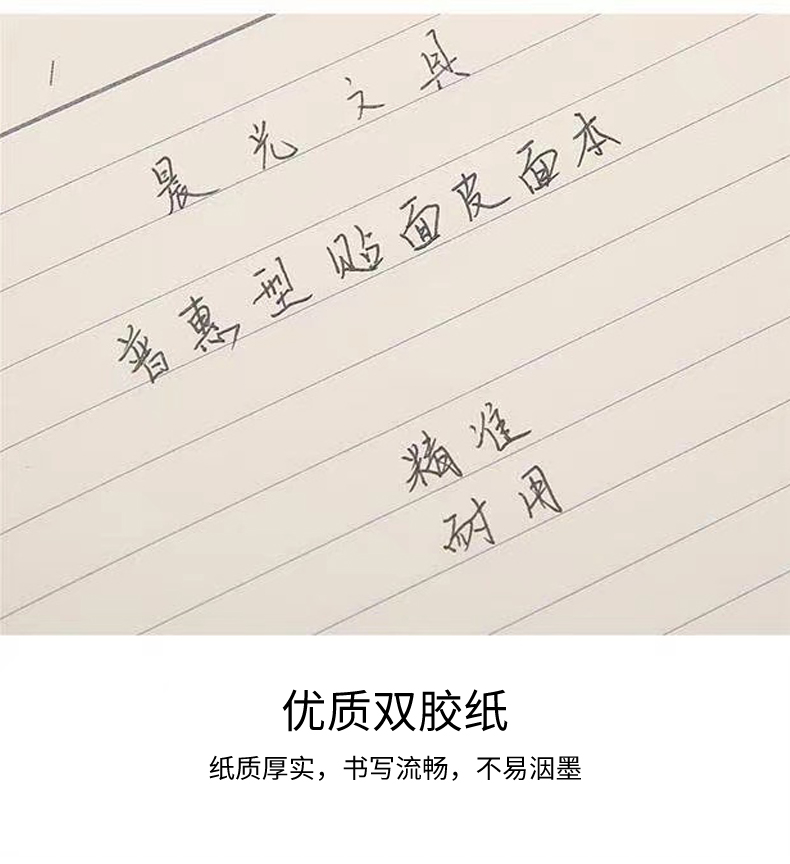 晨光文具
普惠型贴面皮面本
精准
耐用
优质双胶纸
纸质厚实，书写流畅，不易洇墨